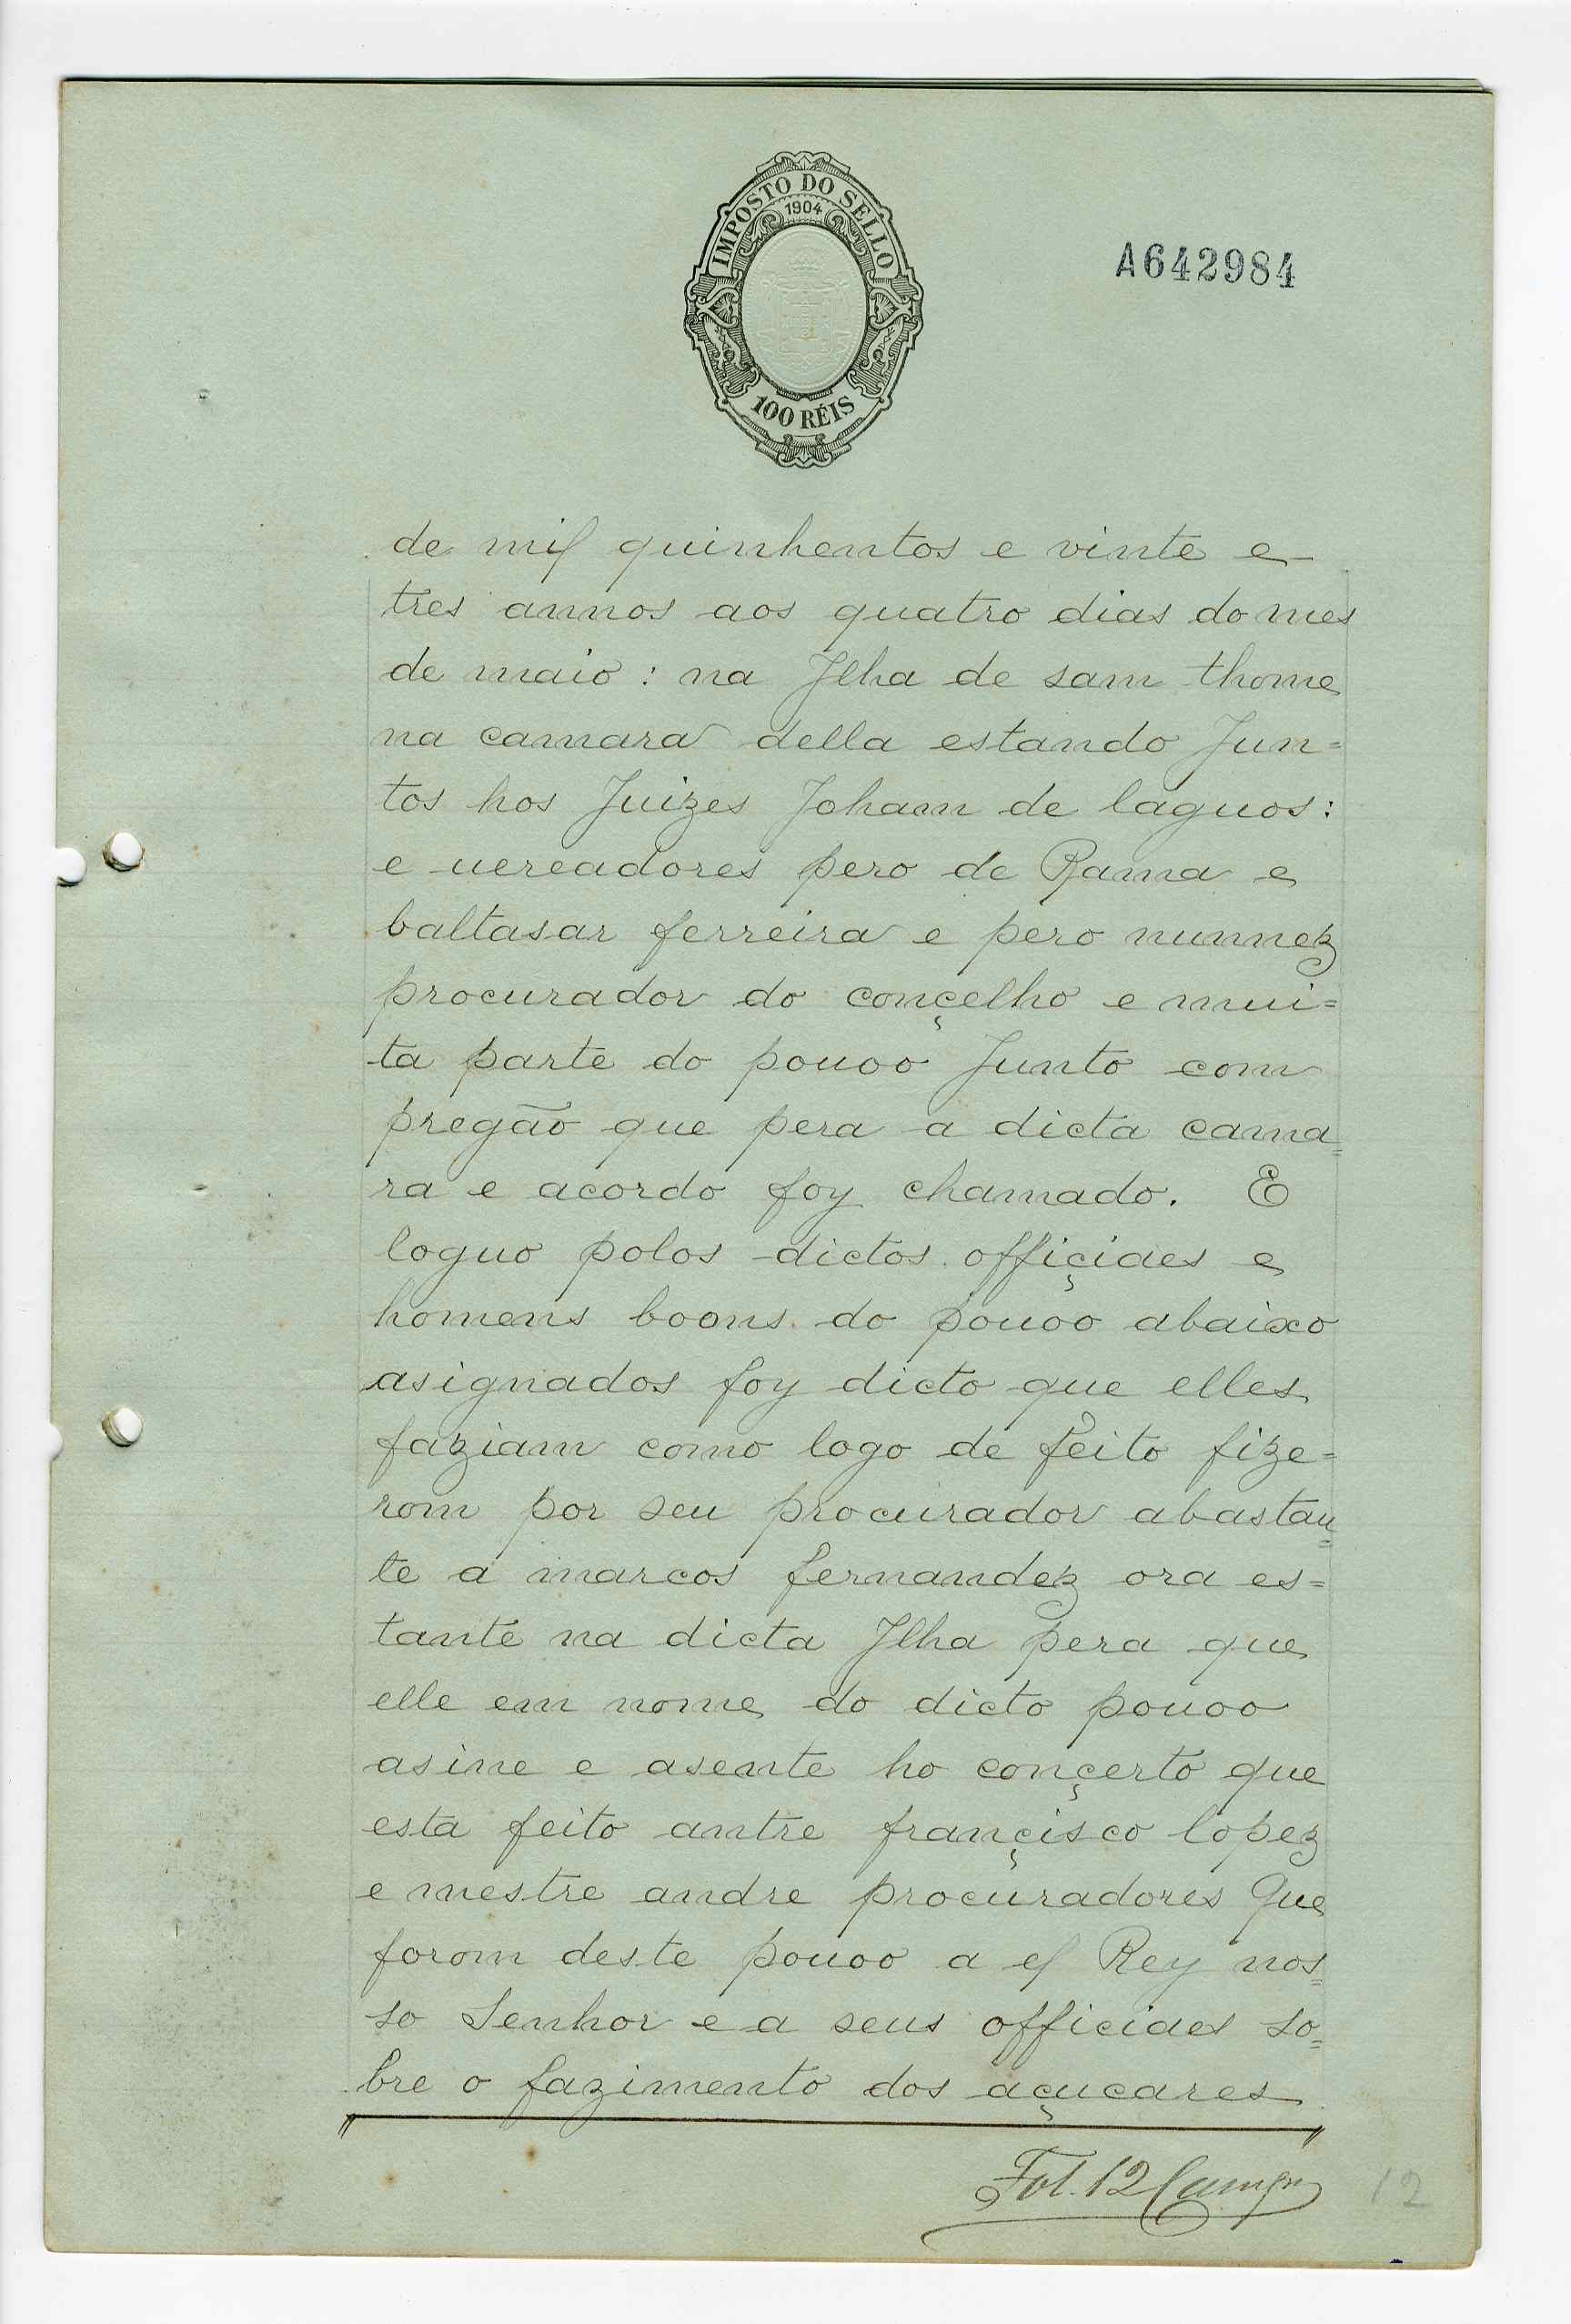 IMPOSTO DO SELLO
1904
100 RÉIS
A642984
de mil quinhentos e vinte e
tres annos aos quatro dias do mes
de maio : na Jlha de sam thome
na camara della estando Jun=
tos hos Juizes Joham de laguos :
e uereadores pero de Rama e
baltasar ferreira e pero nunnez
procurador do conçelho e mui=
ta parte do pouoo Junto com
pregão que pera a dicta cama=
ra e acordo foy chamado. E
loguo polos dictos offiçiaes e
homens boons do pouoo abaixo
asignados foy dicto que elles
faziam como logo de feito fize=
rom por seu procurador abastan=
te a marcos fernandez ora es=
tante na dicta Jlha pera que
elle em nome do dicto pouoo
asine e asente ho conçerto que
esta feito antre françisco lopez
e mestre andre procuradores que
forom deste pouoo a el Rey nos=
so Senhor e a seus officiaes so=
bre o fazimento dos açucares
Fol. 12
12